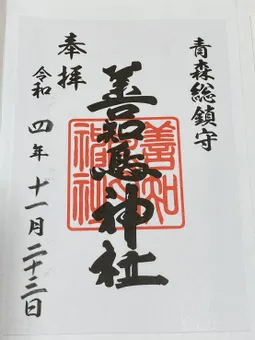 青森総鎮守
善知鳥神社
奉拝
令和四年十一月二十三日
善知鳥神社